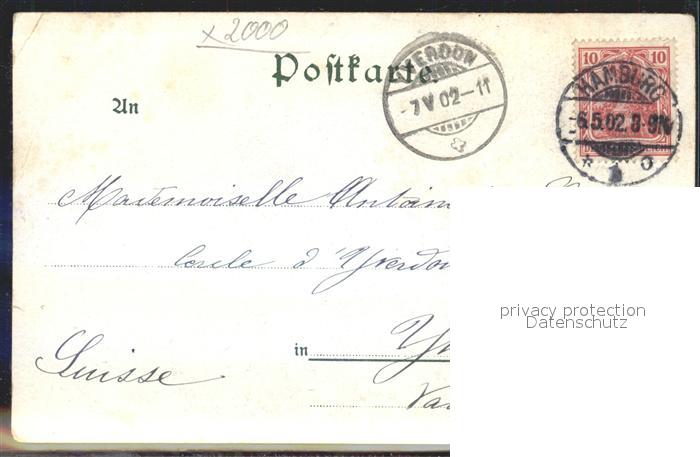 x 2000
Postkarte.
YVERDON
-7 V 02-11
10 10
HAMBURG
6.5.02. 8-9N
* 1 O
An
Mademoiselle
Cercle d'Yverdon
in
Suisse
privacy protection
Datenschutz